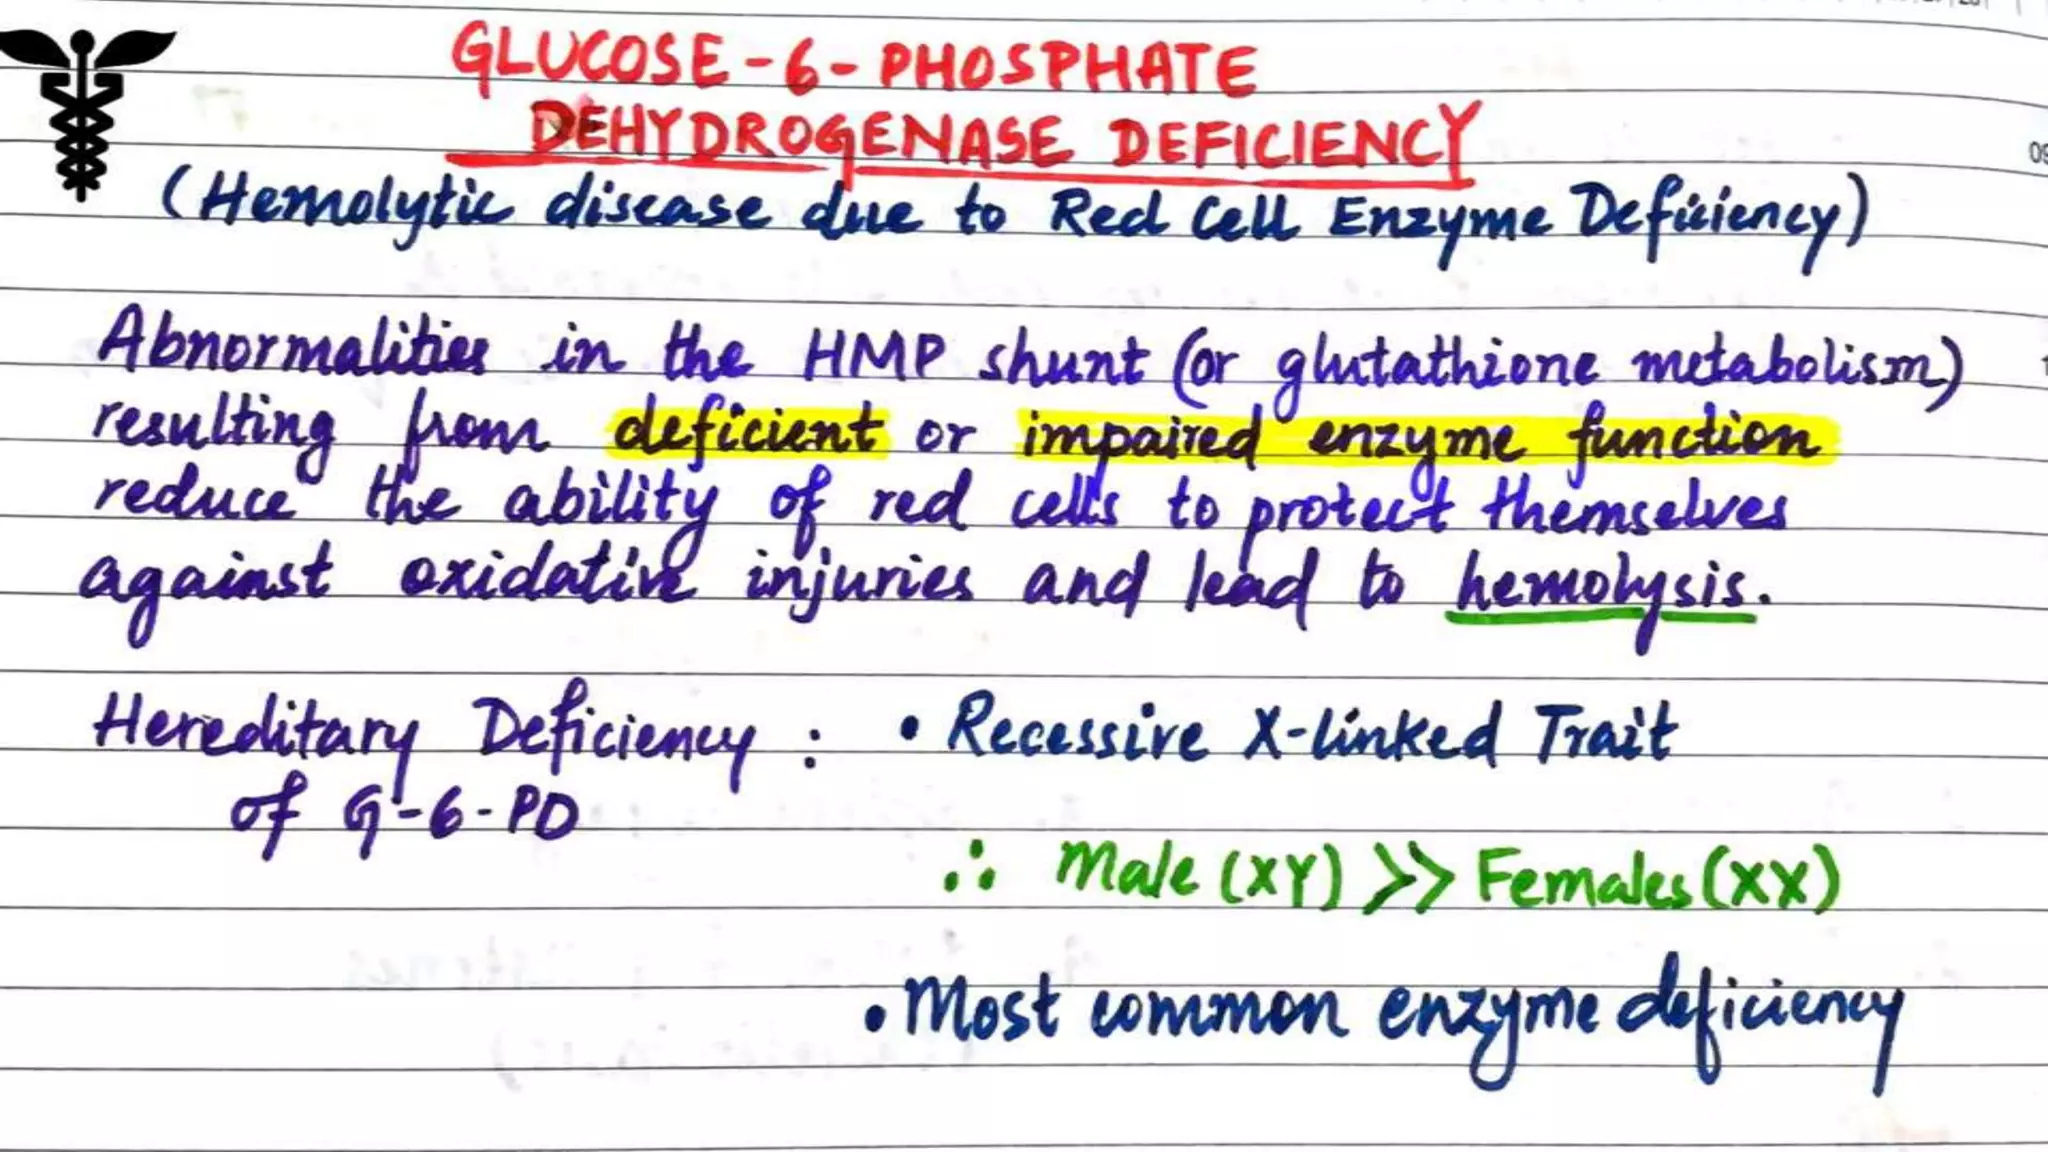 GLUCOSE-6-PHOSPHATE
DEHYDROGENASE DEFICIENCY
(Hemolytic disease due to Red Cell Enzyme Deficiency)
Abnormalities in the HMP shunt (or glutathione metabolism)
resulting from deficient or impaired enzyme function
reduce the ability of red cells to protect themselves
against oxidative injuries and lead to hemolysis.
Hereditary Deficiency : • Recessive X-linked Trait
of G-6-PD
∴ Male (XY) >> Females (XX)
• Most common enzyme deficiency